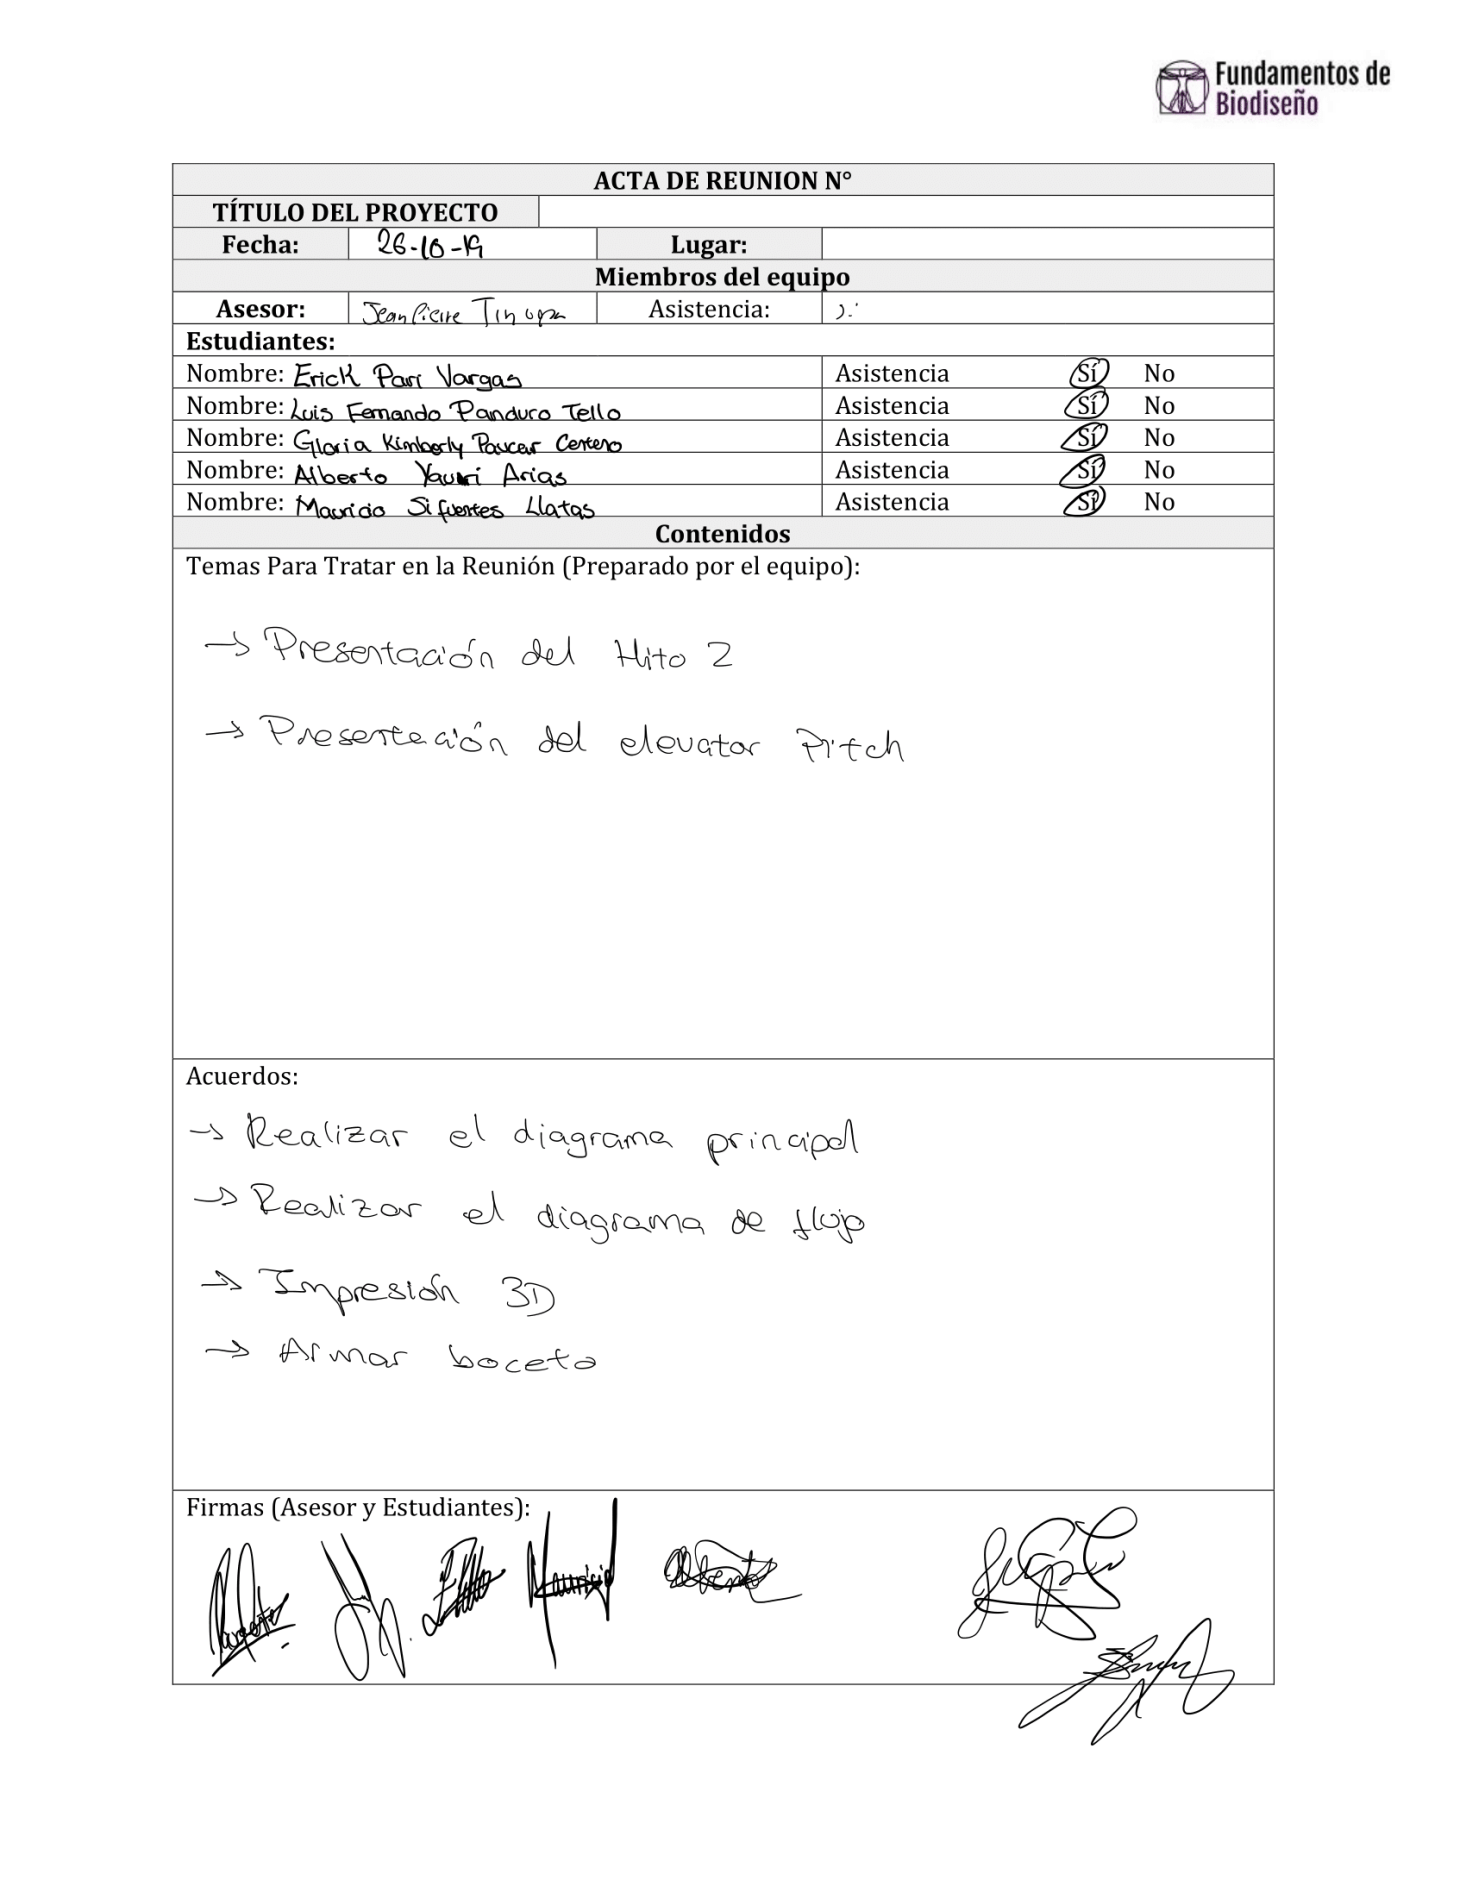 Fundamentos de
Biodiseño
ACTA DE REUNION N°
TÍTULO DEL PROYECTO
Fecha: 26-10-19 Lugar:
Miembros del equipo
Asesor: Jean Pierre Asistencia:
Estudiantes:
Nombre: Erick Pari Vargas Asistencia Sí No
Nombre: Luis Fernando Panduro Tello Asistencia Sí No
Nombre: Gloria Kimberly Paucar Asistencia Sí No
Nombre: Alberto Yauri Arias Asistencia Sí No
Nombre: Mauricio Sifuentes Llatas Asistencia Sí No
Contenidos
Temas Para Tratar en la Reunión (Preparado por el equipo):
→ Presentación del Hito 2
→ Presentación del elevator Pitch
Acuerdos:
→ Realizar el diagrama principal
→ Realizar el diagrama de flujo
→ Impresión 3D
→ Armar boceto
Firmas (Asesor y Estudiantes):
Mauricio
Alberto